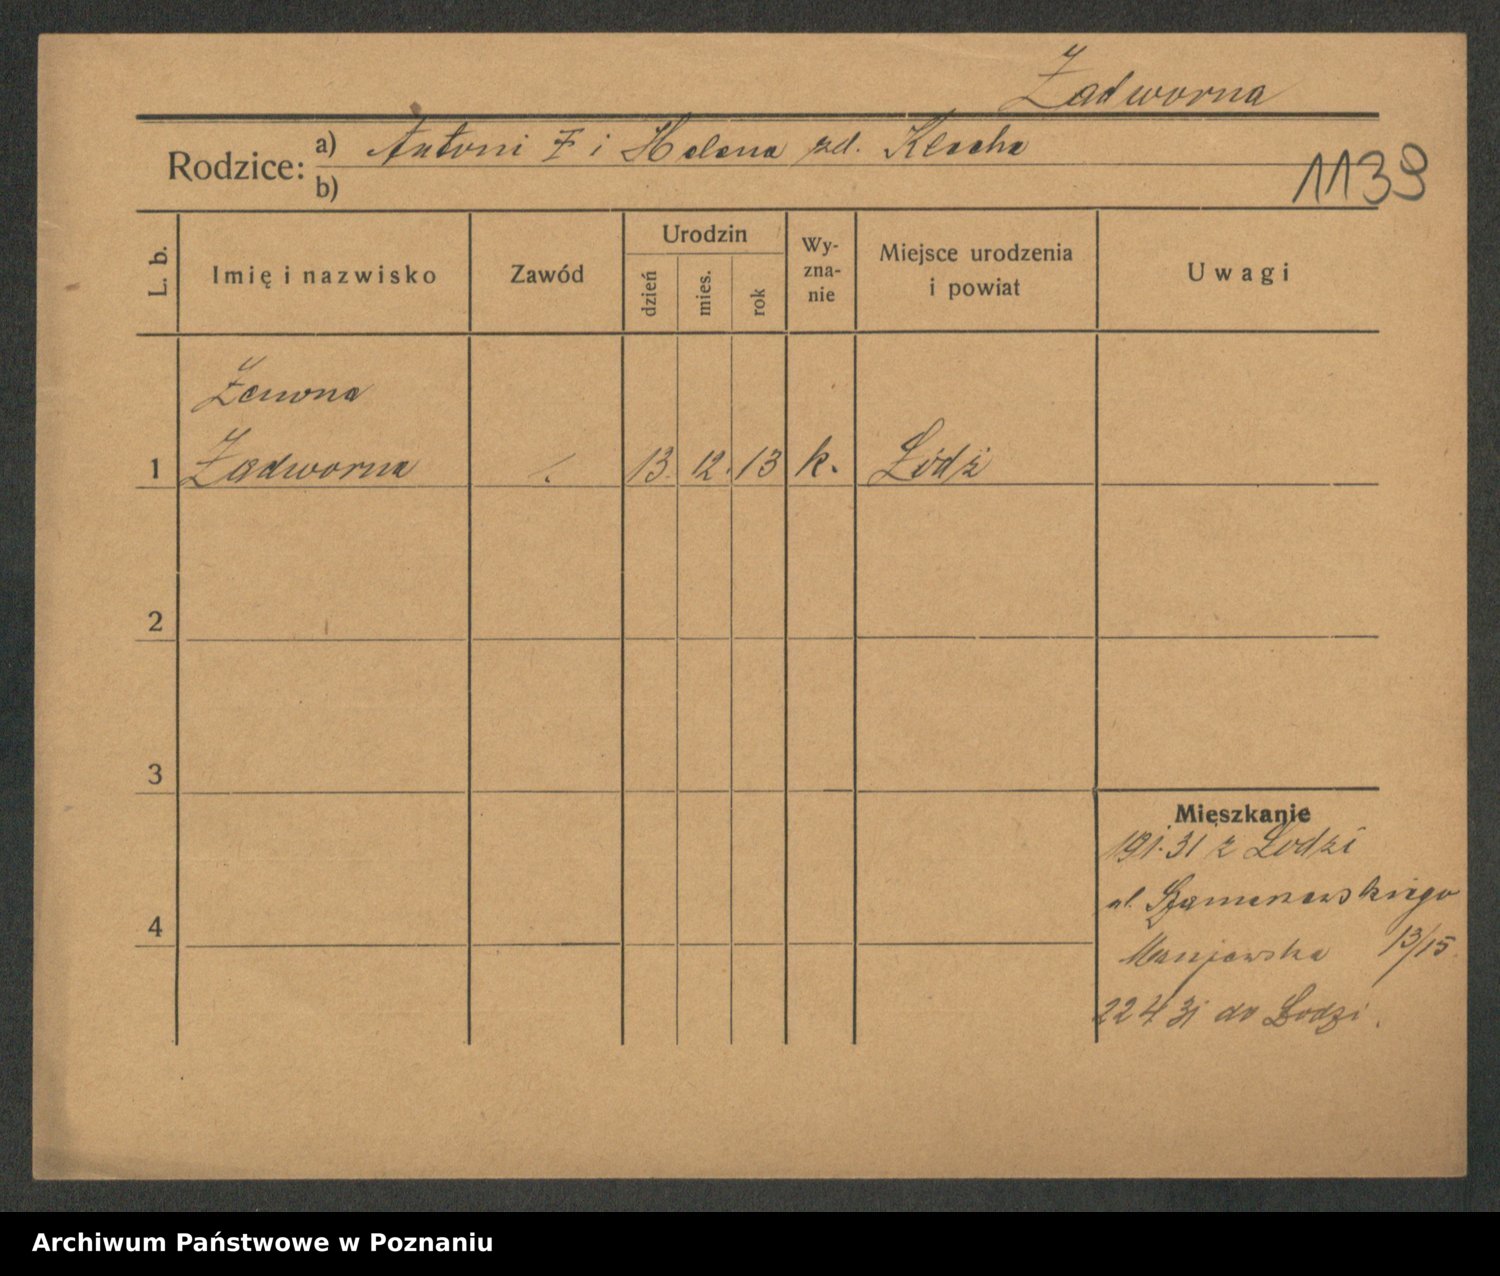 Zadworna
Rodzice: a) Antoni Z i Helena zd. Klocha
b)
1139
L. b. Imię i nazwisko Zawód Urodzin dzień mies. rok Wy-zna-nie Miejsce urodzenia i powiat Uwagi
Zenona
1 Zadworna 13. 12. 13 k. Łódź
2
3
Mieszkanie
19 1. 31 z Łodzi
ul.
4
13/15
22 4 31 do Łodzi.
Archiwum Państwowe w Poznaniu